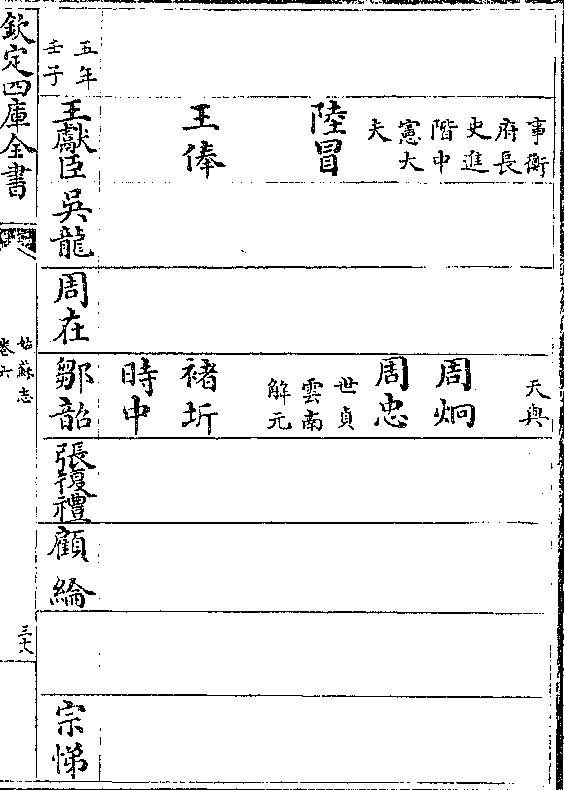 五年
壬子
事衡
府長
史進
階中
憲大
夫
陸冒
王俸
王獻臣
吳龍
周在
天與
周炯
周忠
世貞
雲南
解元
褚圻
時中
鄒韶
張複禮
顧綸
宗悌
欽定四庫全書
姑蘇志
卷六